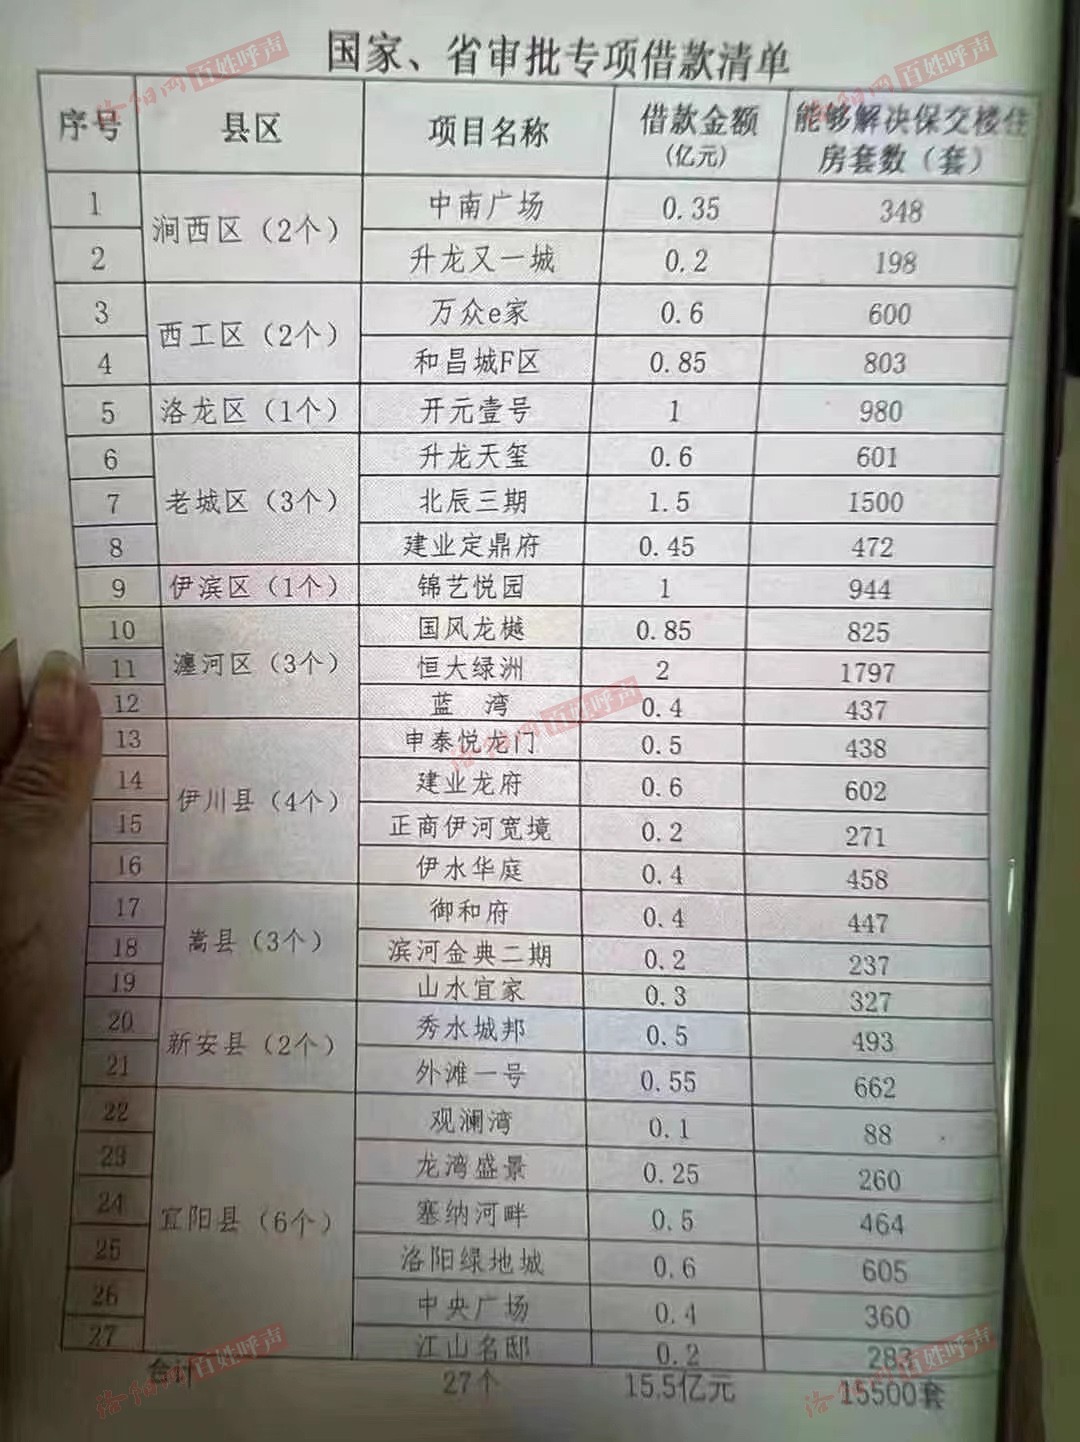 国家、省审批专项借款清单
序号 县区 项目名称 借款金额(亿元) 能够解决保交楼住房套数（套）
1 涧西区（2个） 中南广场 0.35 348
2 升龙又一城 0.2 198
3 西工区（2个） 万众e家 0.6 600
4 和昌城F区 0.85 803
5 洛龙区（1个） 开元壹号 1 980
6 老城区（3个） 升龙天玺 0.6 601
7 北辰三期 1.5 1500
8 建业定鼎府 0.45 472
9 伊滨区（1个） 锦艺悦园 1 944
10 瀍河区（3个） 国风龙樾 0.85 825
11 恒大绿洲 2 1797
12 蓝 湾 0.4 437
13 伊川县（4个） 申泰悦龙门 0.5 438
14 建业龙府 0.6 602
15 正商伊河宽境 0.2 271
16 伊水华庭 0.4 458
17 嵩县（3个） 御和府 0.4 447
18 滨河金典二期 0.2 237
19 山水宜家 0.3 327
20 新安县（2个） 秀水城邦 0.5 493
21 外滩一号 0.55 662
22 宜阳县（6个） 观澜湾 0.1 88
23 龙湾盛景 0.25 260
24 塞纳河畔 0.5 464
25 洛阳绿地城 0.6 605
26 中央广场 0.4 360
27 江山名邸 0.2 283
合计 27个 15.5亿元 15500套
洛阳网 百姓呼声
洛阳网 百姓呼声
洛阳网 百姓呼声
洛阳网 百姓呼声